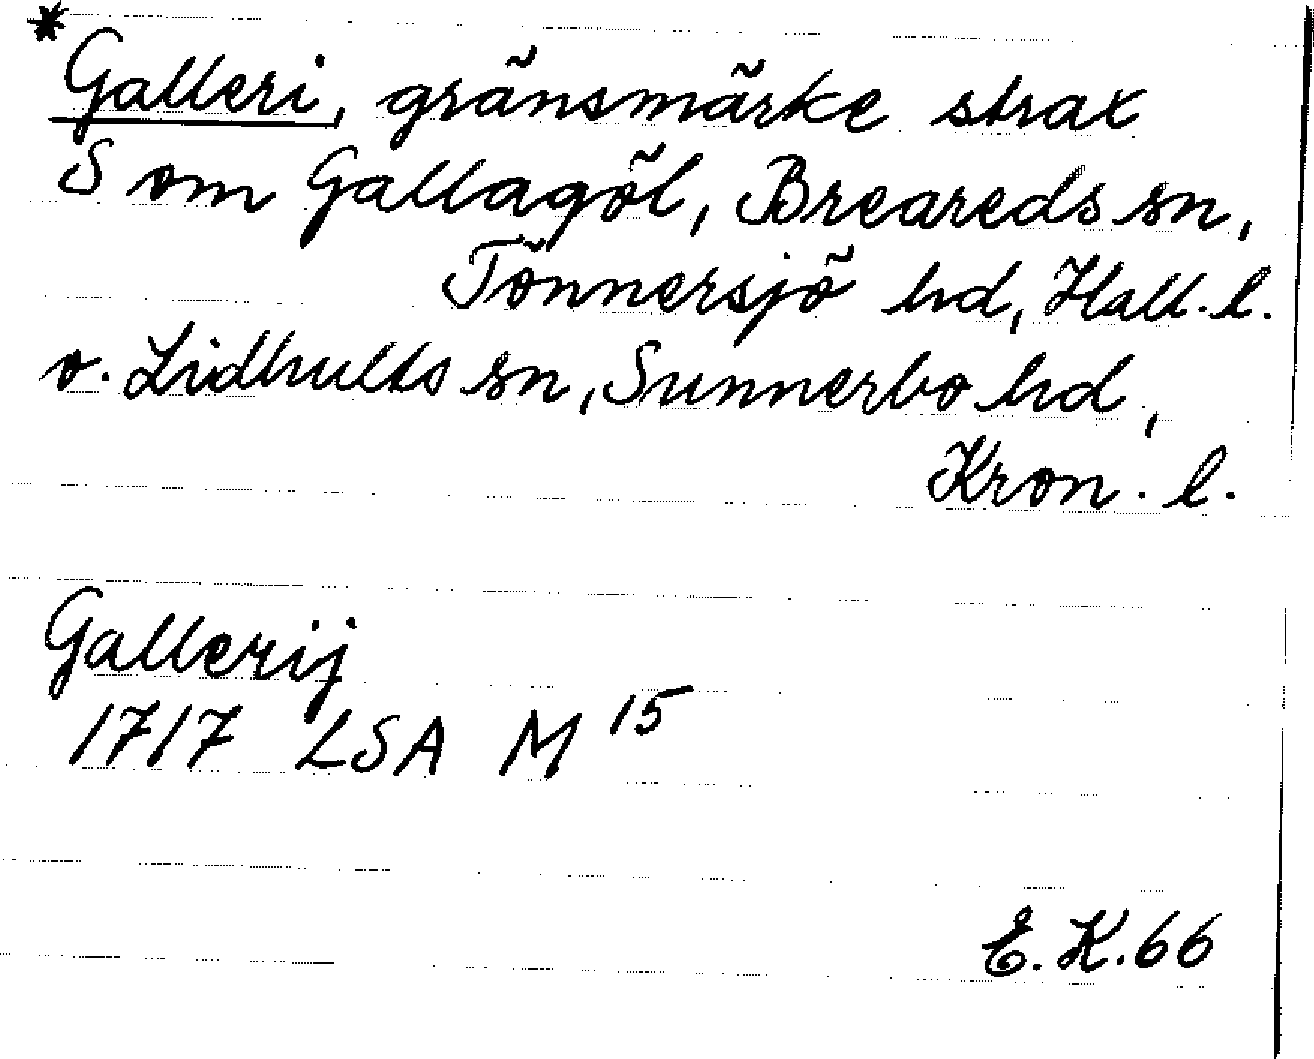 *
Galleri, gränsmärke strax
S om Gallagöl, Breareds sn,
Tönnersjö hd, Hall. l.
o. Lidhults sn, Sunnerbo hd,
Kron. l.
Gallerij
1717 LSA M 15
E. K. 66